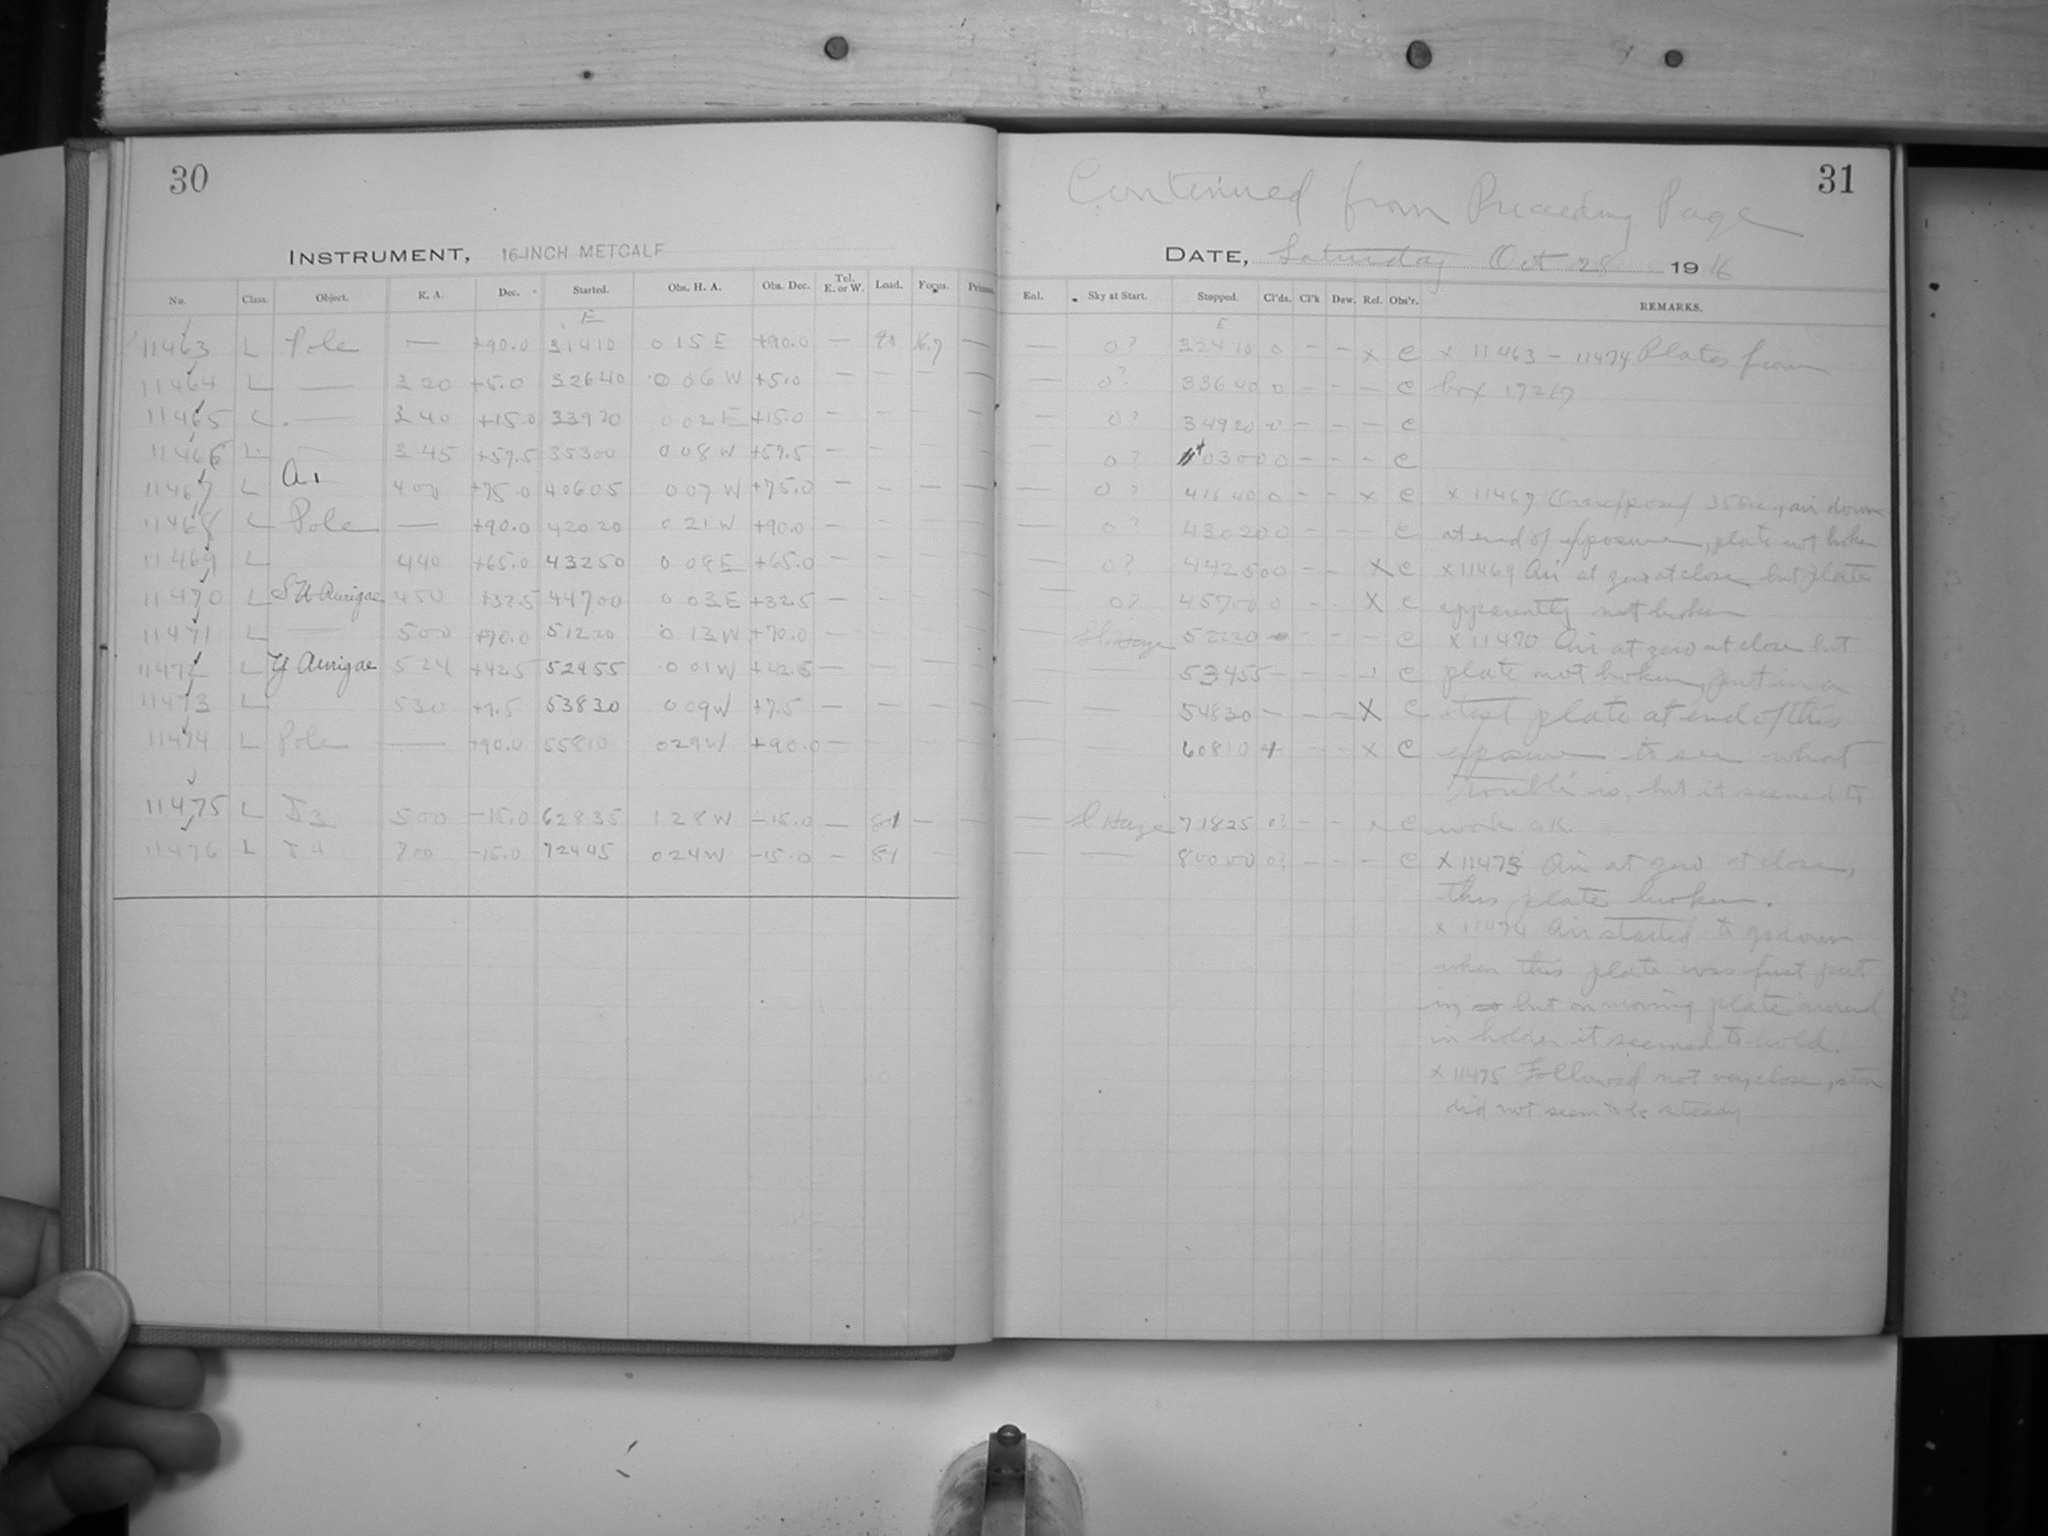 30
INSTRUMENT, 16-INCH METCALF
No. Class. Object. R. A. Dec. Started. Obs. H. A. Obs. Dec. Tel. E. or W. Load. Focus.
E
11463 L Pole — +90.0 31410 0 15 E +90.0 — 81 16.9 —
11464 L — 3 20 +5.0 32640 0 06 W +5.0 — — — —
11465 L — 3 40 +15.0 33920 0 02 E +15.0 — — — —
11466 L — 3 45 +57.5 35300 0 08 W +57.5 — — — —
11467 L 4 00 +75.0 40605 0 07 W +75.0 — — — —
11468 L Pole — +90.0 42020 0 21 W +90.0 — — — —
11469 L 4 40 +65.0 43250 0 08 E +65.0 — — — —
11470 L SU Aurigae 4 50 +32.5 44700 0 03 E +32.5 — — — —
11471 L — 5 00 +70.0 51220 0 13 W +70.0 — — — —
11472 L Y Aurigae 5 24 +42.5 52455 0 01 W +42.5 — — — —
11473 L 5 30 +7.5 53830 0 09 W +7.5 — — — —
11474 L Pole — +90.0 55810 0 29 W +90.0 —
11475 L 5 00 -15.0 62835 1 28 W -15.0 — 81 — —
11476 L 7 00 -15.0 72445 0 24 W -15.0 — 81
31
Continued from Preceding Page
DATE, Saturday Oct 28 1916
Enl. Sky at Start. Stopped. Cl'ds. Cl'k Dew. Ref. Obs'r. REMARKS.
E
— 0? 32410 0 - - x C x 11463 - 11474 Plates from
— 0? 33640 0 - - - C box 17217
— 0? 34920 0 - - - C
0? 03000 - - - C
— 0? 41640 0 - - x C x 11467 Overexposed 35 sec., air down
— 0? 43020 0 - - C at end of exposure, plate not broken
— 0? 44250 0 - - X C x 11469 Air at zero at close but plate
— 0? 45700 0 - - X C apparently not broken
Sl. Haze 52220 - - - - C x 11470 Air at zero at close but
— 53455 - - - C plate not broken, put in a
— — 54830 - - - X C test plate at end of this
— 60810 - - x C exposure to see what
trouble is, but it seemed to
— Sl Haze 71825 0? - - x C work O.K.
— — 80000 0? - - - C x 11473 Air at zero at close,
this plate broken.
x 11474 Air started to go down
when this plate was first put
in, but on moving plate around
in holder it seemed to hold.
x 11475 Followed not very close, star
did not seem to be steady